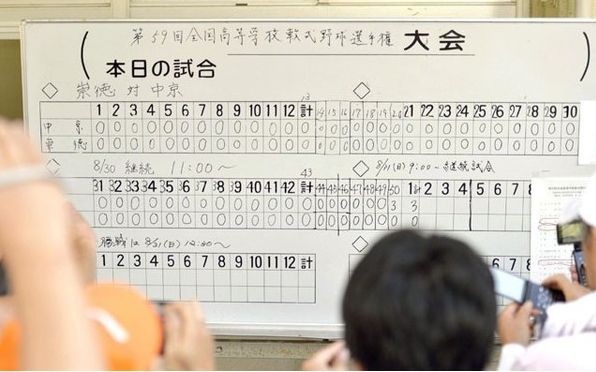 第59回全国高等学校軟式野球選手権 大会
本日の試合
崇徳 対 中京
1 2 3 4 5 6 7 8 9 10 11 12 計 13 14 15 16 17 18 19 20 21 22 23 24 25 26 27 28 29 30
中京 0 0 0 0 0 0 0 0 0 0 0 0 0 0 0 0 0 0 0 0 0 0 0 0 0 0 0 0 0 0
崇徳 0 0 0 0 0 0 0 0 0 0 0 0 0 0 0 0 0 0 0 0 0 0 0 0 0 0 0 0 0 0
8/30 継続 11:00〜
8/31(日) 9:00〜継続試合
31 32 33 34 35 36 37 38 39 40 41 42 計 43 44 45 46 47 48 49 50 計 1 2 3 4 5 6 7 8
0 0 0 0 0 0 0 0 0 0 0 0 0 0 0 0 0 0 0 3 3
0 0 0 0 0 0 0 0 0 0 0 0 0 0 0 0 0 0 0 0 0
勝戦は 8/31(日)
1 2 3 4 5 6 7 8 9 10 11 12 計